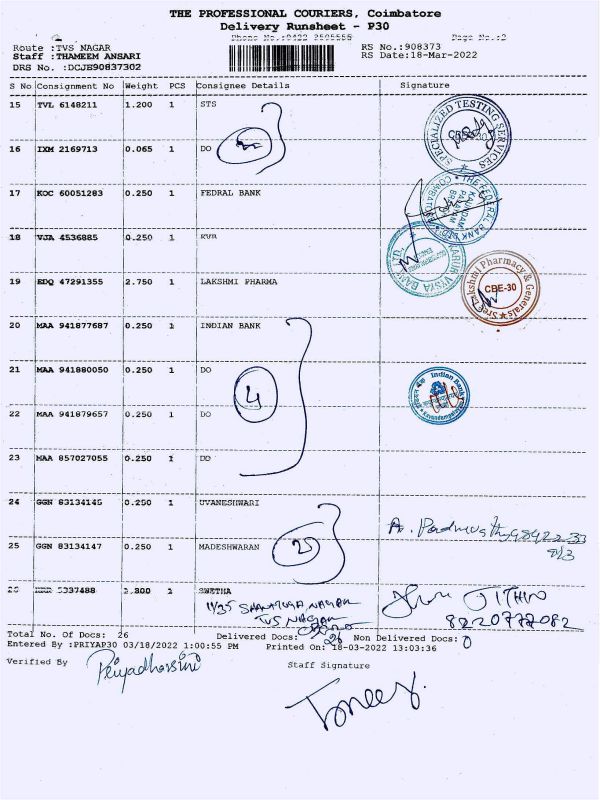 THE PROFESSIONAL COURIERS, Coimbatore
Delivery Runsheet - P30
Page No.:2
Route :TVS NAGAR
RS No.:908373
Staff :THAMEEM ANSARI
RS Date:18-Mar-2022
DRS No. :DCJE90837302
S No Consignment No Weight PCS Consignee Details Signature
15 TVL 6148211 1.200 1 STS
SPECIALIZED TESTING SERVICES
16 IXM 2169713 0.065 1 DO
17 KOC 60051283 0.250 1 FEDRAL BANK
THE FEDERAL BANK LTD
18 VJA 4536885 0.250 1 KVB
KARUR VYSYA BANK LTD
19 EDQ 47291355 2.750 1 LAKSHMI PHARMA
Sree Lakshmi Pharmacy & Generals
CBE-30
20 MAA 941877687 0.250 1 INDIAN BANK
21 MAA 941880050 0.250 1 DO
4
Indian Bank
22 MAA 941879657 0.250 1 DO
23 MAA 857027055 0.250 1 DO
24 GGN 83134145 0.250 1 UVANESHWARI
25 GGN 83134147 0.250 1 MADESHWARAN
2
5337488 1 SWETHA
11/35 SHANMUGA NAGAR
TVS NAGAR
JITHIN
8220772082
Total No. Of Docs: 26 Delivered Docs: 26 Non Delivered Docs: 0
Entered By :PRIYAP30 03/18/2022 1:00:55 PM Printed On: 18-03-2022 13:03:36
Verified By Priyadharsini Staff Signature